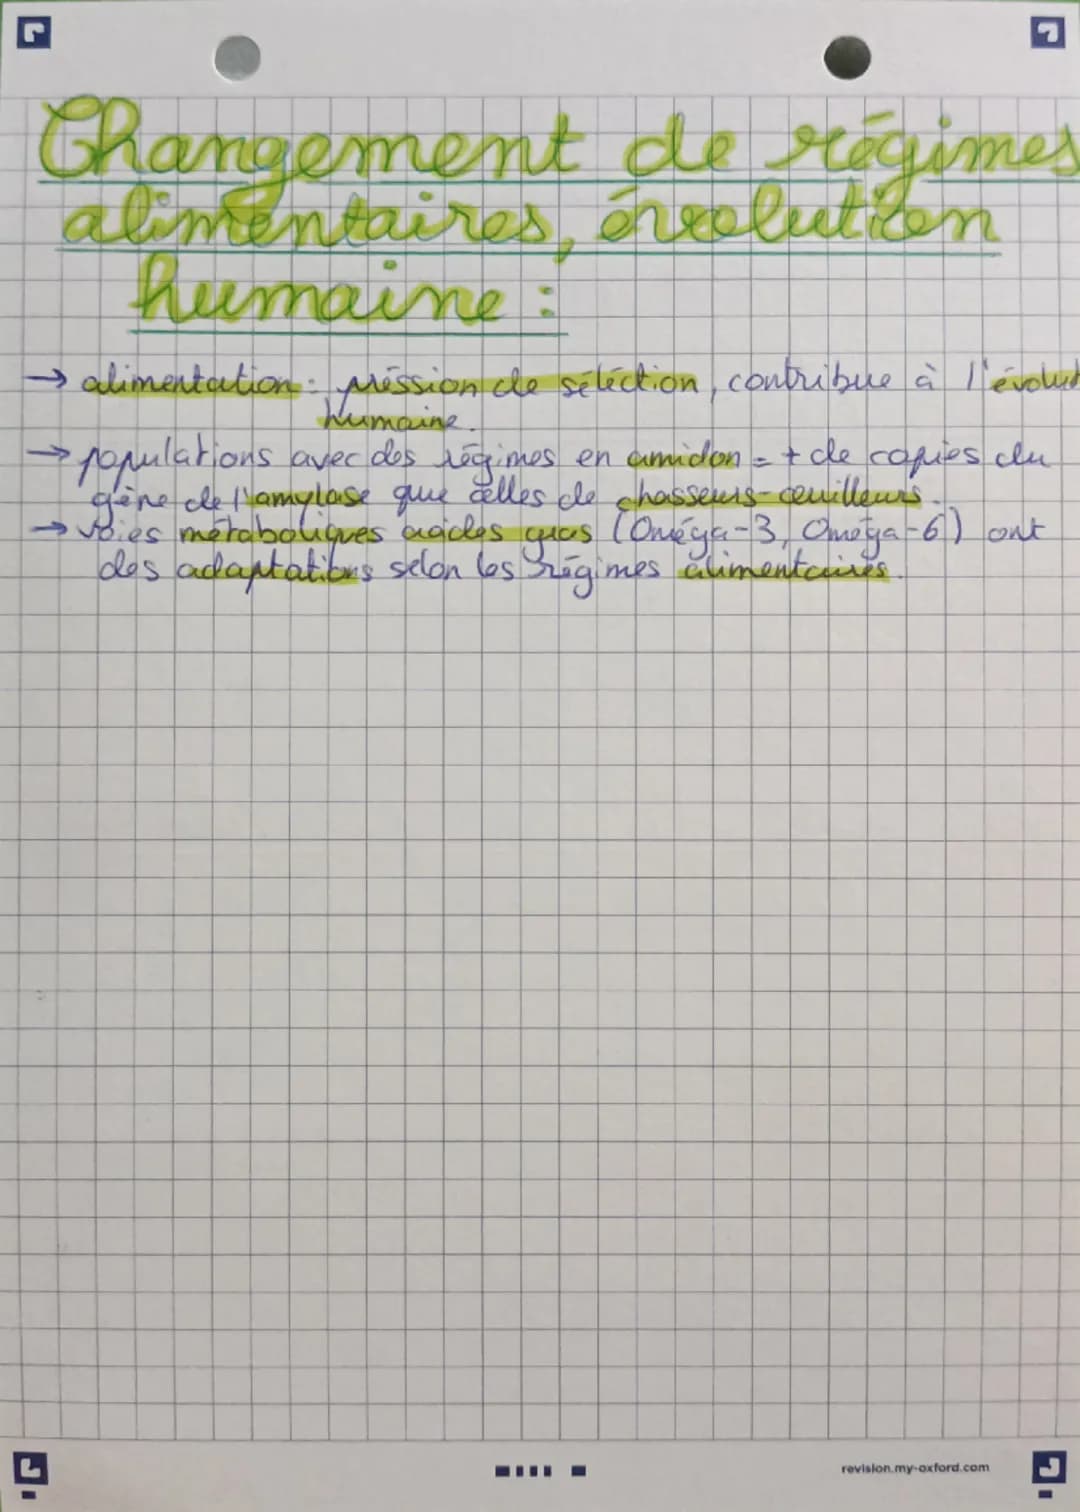 Changement de régimes
alimentaires, évolution
humaine :
→ alimentation : préssion de séléction, contribue à l'évolut
humaine.
→ populations avec des régimes en amidon = + de copies du
gène de l'amylase que celles de chasseurs-ceuilleurs.
→ voies métaboliques acides gras (Oméga-3, Oméga-6) ont
des adaptations selon les régimes alimentaires.
revision.my-oxford.com